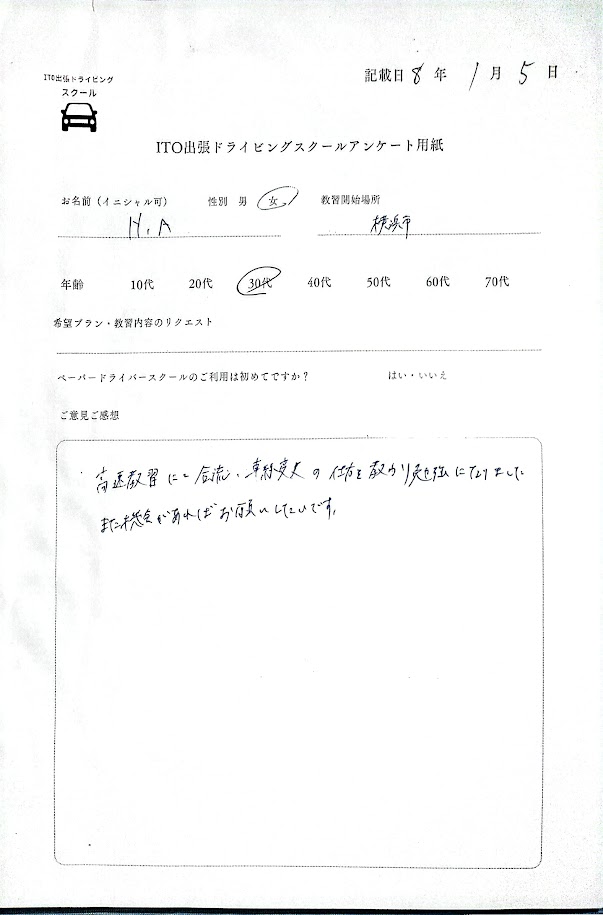 ITO出張ドライビング
スクール
記載日 8 年 1 月 5 日
ITO出張ドライビングスクールアンケート用紙
お名前(イニシャル可) 性別 男 女 教習開始場所
H.A 横浜市
年齢 10代 20代 30代 40代 50代 60代 70代
希望プラン・教習内容のリクエスト
ペーパードライバースクールのご利用は初めてですか? はい・いいえ
ご意見ご感想
高速教習にて合流・車線変更の仕方を教わり勉強になりました
また機会があればお願いしたいです。